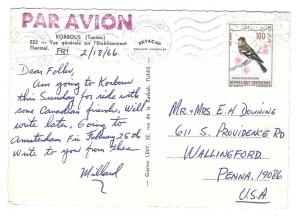 PAR AVION
KORBOUS (Tunisie)
822 — Vue générale sur l'Etablissement
Thermal.
FRI 2/18/66
Dear Folks,
Am going to Korbous
this Sunday for ride with
some Canadian friends. Will
write later. Going to
Amsterdam Fri February 25th
Write to you from there
Millard
Gaston LEVY, 10, rue de la Kasbah, TUNIS
100
REPUBLIQUE TUNISIENNE
MR. & MRS E. H DOWNING
611 S. PROVIDENCE RD
WALLINGFORD
PENNA, 19086
U.S.A